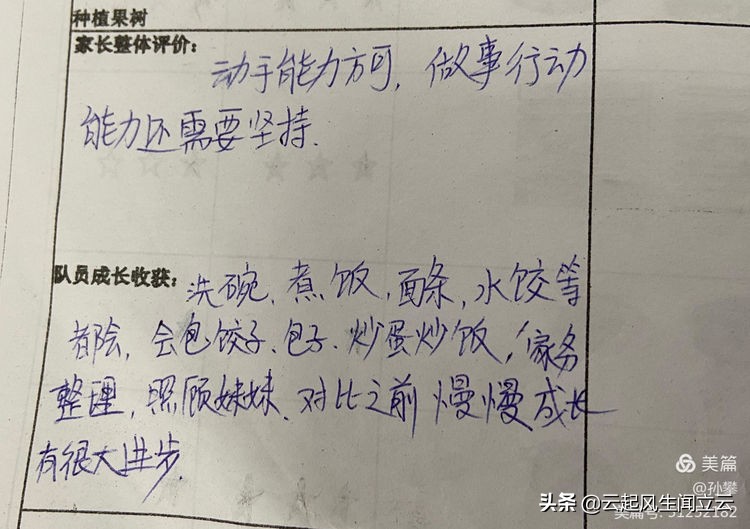 种植果树
家长整体评价:
动手能力方可，做事行动
能力还需要坚持.
队员成长收获:
洗碗、煮饭,面条,水饺等
都会,会包饺子、包子、炒蛋炒饭,家务
整理,照顾妹妹、对比之前慢慢成长
有很大进步.
美篇
@孙攀
美篇号: 51252182
头条 @云起风生闻立云